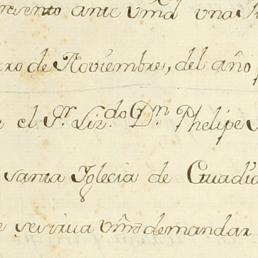 resento ante Vmd una
ro de Noviembre, del año
el Sr. Liz.do Dn. Phelipe
santa Iglecia de Guadi
se sirva Vmd demandar